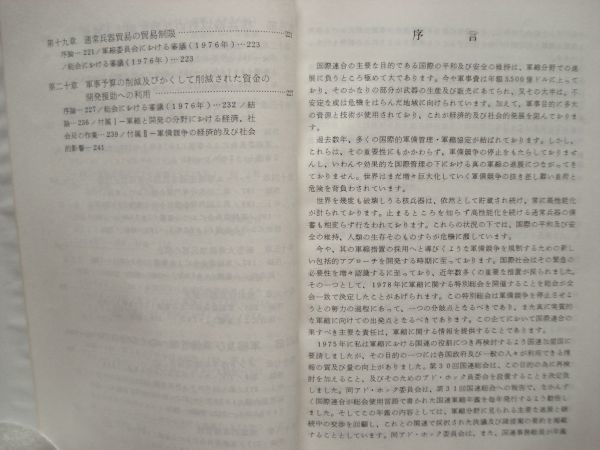 第十九章 通常兵器貿易の貿易制限
序論…221／軍縮委員会における審議（1976年）…223
／総会における審議（1976年）…223
第二十章 軍事予算の削減及びかくして削減された資金の
開発援助への利用
序論…227／総会における審議（1976年）…232／結
論…236／付属Ⅰ－軍縮と開発の分野における経済、社
会及の作業…239／付属Ⅱ－軍備競争の経済的及び社会
的影響…241
序言
国際連合の主要な目的である国際の平和及び安全の維持は、軍縮分野での進
展に負うところ極めて大であります。今や軍事費は年額3,500億ドルに上って
おり、そのかなりの部分が兵器の生産及び販売にあてられ、又その大半は、不
安定な或は危機をはらんだ地域に向けられています。加えて、軍事目的に多大
の資源と技術が使用されており、これが経済的及び社会的発展を阻んでおりま
す。
過去数年、多くの国際的軍備管理・軍縮協定が結ばれております。しかし、
これらは、その重要性にもかかわらず、軍備競争の停止をもたらしておりませ
んし、いわんや効果的な国際管理の下における真の軍縮の進展につながってき
ておりません。世界はまだ増々巨大化していく軍備競争の抜き差し難い重荷と
危険を背負わされています。
世界を幾度も破壊しうる核兵器は、依然として貯蔵され続け、常に高性能化
が計られております。止まるところを知らず高性能化を続ける通常兵器の備
蓄も相変らず行なわれております。これらの状況の下では、国際の平和及び安
全の維持、人類の生存そのものすらが危機に瀕しています。
今や、其の軍縮措置の採用へと導びくような軍備競争を規制するための新し
い包括的アプローチを開発する時期に至っております。国際社会はその緊急の
必要性を増々認識するに至っており、近年数多くの重要な措置が採られました。
その一つとして、1978年に軍縮に関する特別総会を開催することを総会が全
会一致で決定したことがあげられます。この特別総会は軍備競争を停止させよ
うとの努力の過程にあって、一つの分岐点となるべきであり、また真に実質的
な軍縮に向けての出発点となるべきであります。この企てにおいて国際連合の
果すべき主要な責任は、軍縮に関する情報を提供することであります。
1975年に私は軍縮における国連の役割につき再検討するよう国連加盟国に
要請しましたが、その目的の一つには各国政府及び一般の人々が利用できる情
報の質及び量の向上がありました。第30回国連総会は、この目的の為に再検
討を加えること、及びそのためのアド・ホック委員会を設置することを決定致
しました。同アド・ホック委員会は、第31回国連総会への報告で、なかんず
く国際連合が総会使用言語で書かれた国連軍縮年鑑を毎年発行するよう勧告し
ました。そしてこの年鑑の内容としては、軍縮分野に見られる主要な進展と継
続中の交渉を回顧し、これとの関連で採択された決議及び諸提案の要約を掲載
することとしています。同アド・ホック委員会は、また、国連事務総長が年鑑